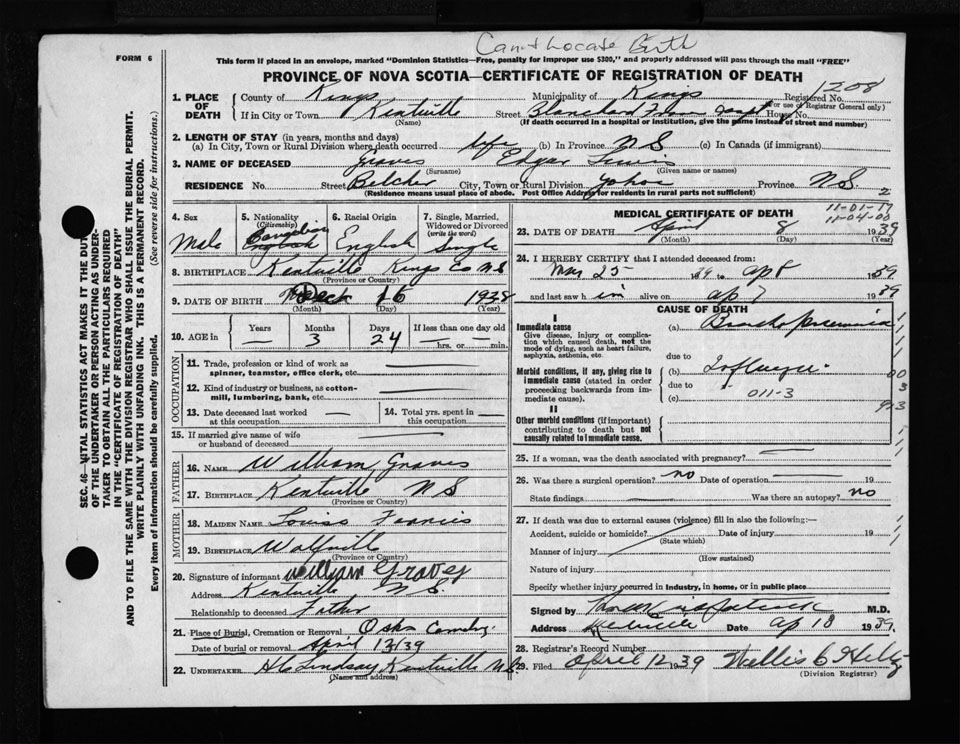 Can't Locate Birth
FORM 6
This form if placed in an envelope, marked "Dominion Statistics—Free, penalty for improper use $300," and properly addressed will pass through the mail "FREE"
PROVINCE OF NOVA SCOTIA—CERTIFICATE OF REGISTRATION OF DEATH
SEC. 46—VITAL STATISTICS ACT MAKES IT THE DUTY
OF THE UNDERTAKER OR PERSON ACTING AS UNDER-
TAKER TO OBTAIN ALL THE PARTICULARS REQUIRED
IN THE "CERTIFICATE OF REGISTRATION OF DEATH"
AND TO FILE THE SAME WITH THE DIVISION REGISTRAR WHO SHALL ISSUE THE BURIAL PERMIT.
WRITE PLAINLY WITH UNFADING INK. THIS IS A PERMANENT RECORD.
Every item of information should be carefully supplied. (See reverse side for instructions.)
1. PLACE OF DEATH County of Kings Municipality of Kings Registered No. 1208
(For use of Registrar General only)
If in City or Town Kentville Street House No.
(Name) (If death occurred in a hospital or institution, give the name instead of street and number)
2. LENGTH OF STAY (in years, months and days)
(a) In City, Town or Rural Division where death occurred life (b) In Province N S (c) In Canada (if immigrant)
3. NAME OF DECEASED Graves Edgar Lewis
(Surname) (Given name or names)
RESIDENCE No. Street Belcher City, Town or Rural Division Province N.S. 2
(Residence means usual place of abode. Post Office Address for residents in rural parts not sufficient)
4. Sex Male
5. Nationality (Citizenship) Canadian English
6. Racial Origin English
7. Single, Married, Widowed or Divorced (write the word) Single
8. BIRTHPLACE Kentville Kings Co N S
(Province or Country)
9. DATE OF BIRTH Dec 15 1938
(Month) (Day) (Year)
10. AGE in Years — Months 3 Days 24 If less than one day old — hrs. or — min.
OCCUPATION
11. Trade, profession or kind of work as spinner, teamster, office clerk, etc. —
12. Kind of industry or business, as cotton-mill, lumbering, bank, etc. —
13. Date deceased last worked at this occupation —
14. Total yrs. spent in this occupation —
15. If married give name of wife or husband of deceased —
FATHER
16. NAME William Graves
17. BIRTHPLACE Kentville N S
(Province or Country)
MOTHER
18. MAIDEN NAME Francis
19. BIRTHPLACE Wolfville
(Province or Country)
20. Signature of informant William Graves
Address Kentville N.S.
Relationship to deceased Father
21. Place of Burial, Cremation or Removal Oaks Cemetery
Date of burial or removal April 12/39
22. UNDERTAKER Lindsay Kentville N.S.
(Name and address)
11-01-17
11-04-00
MEDICAL CERTIFICATE OF DEATH
23. DATE OF DEATH April 8 1939
(Month) (Day) (Year)
24. I HEREBY CERTIFY that I attended deceased from:
Mar 25 1939 to Ap 8 1939
and last saw him alive on Ap 7 1939
CAUSE OF DEATH
I
Immediate cause
Give disease, injury or complication which caused death, not the mode of dying, such as heart failure, asphyxia, asthenia, etc.
(a) Broncho pneumonia
due to
Morbid conditions, if any, giving rise to immediate cause (stated in order proceeding backwards from immediate cause).
(b) Influenza
due to
(c) 011-3
II
Other morbid conditions (if important) contributing to death but not causally related to immediate cause.
25. If a woman, was the death associated with pregnancy? —
26. Was there a surgical operation? no Date of operation — 19
State findings — Was there an autopsy? no
27. If death was due to external causes (violence) fill in also the following:—
Accident, suicide or homicide? Date of injury 19
(State which)
Manner of injury
(How sustained)
Nature of injury
Specify whether injury occurred in industry, in home, or in public place
Signed by M.D.
Address Kentville Date Ap 10 1939.
28. Registrar's Record Number
29. Filed April 12 1939
(Division Registrar)